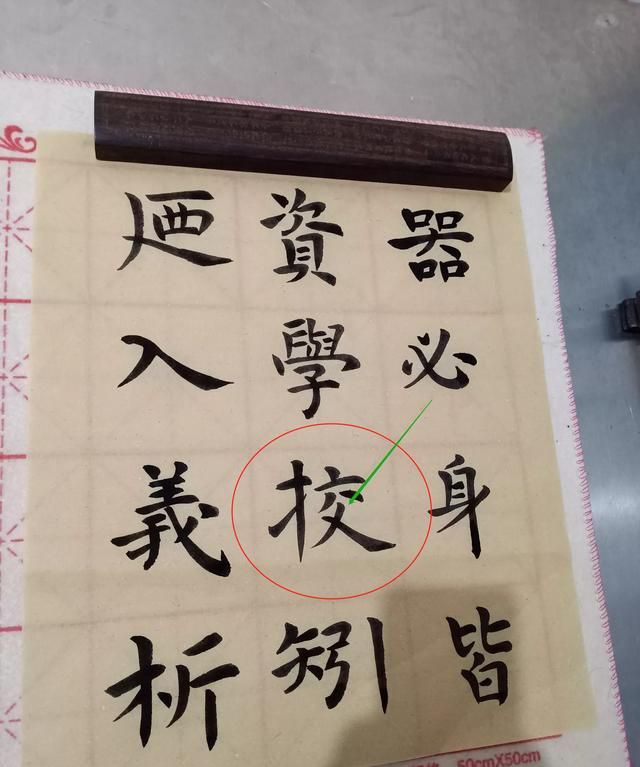 器必身皆
資學挍矧
廼入義析
50cmX50cm